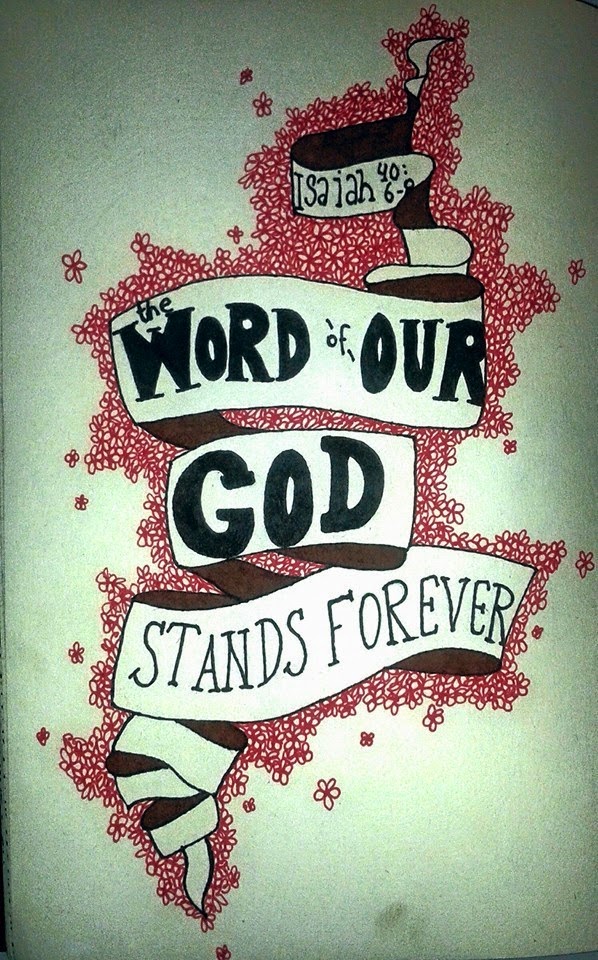 Isaiah 40:
6-8
the
WORD of OUR
GOD
STANDS FOREVER